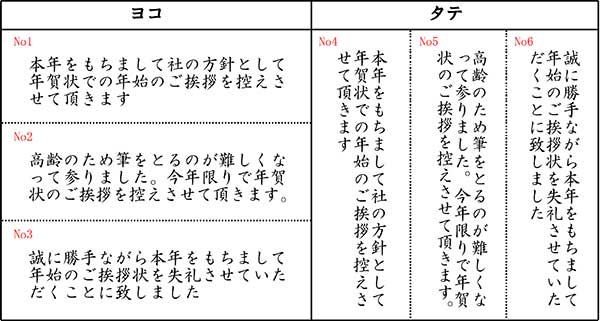 ヨコ
No1
本年をもちまして社の方針として
年賀状での年始のご挨拶を控えさ
せて頂きます
No2
高齢のため筆をとるのが難しくな
って参りました。今年限りで年賀
状のご挨拶を控えさせて頂きます。
No3
誠に勝手ながら本年をもちまして
年始のご挨拶状を失礼させていた
だくことに致しました
タテ
No4
本年をもちまして社の方針として
年賀状での年始のご挨拶を控えさ
せて頂きます
No5
高齢のため筆をとるのが難しくな
って参りました。今年限りで年賀
状のご挨拶を控えさせて頂きます。
No6
誠に勝手ながら本年をもちまして
年始のご挨拶状を失礼させていた
だくことに致しました